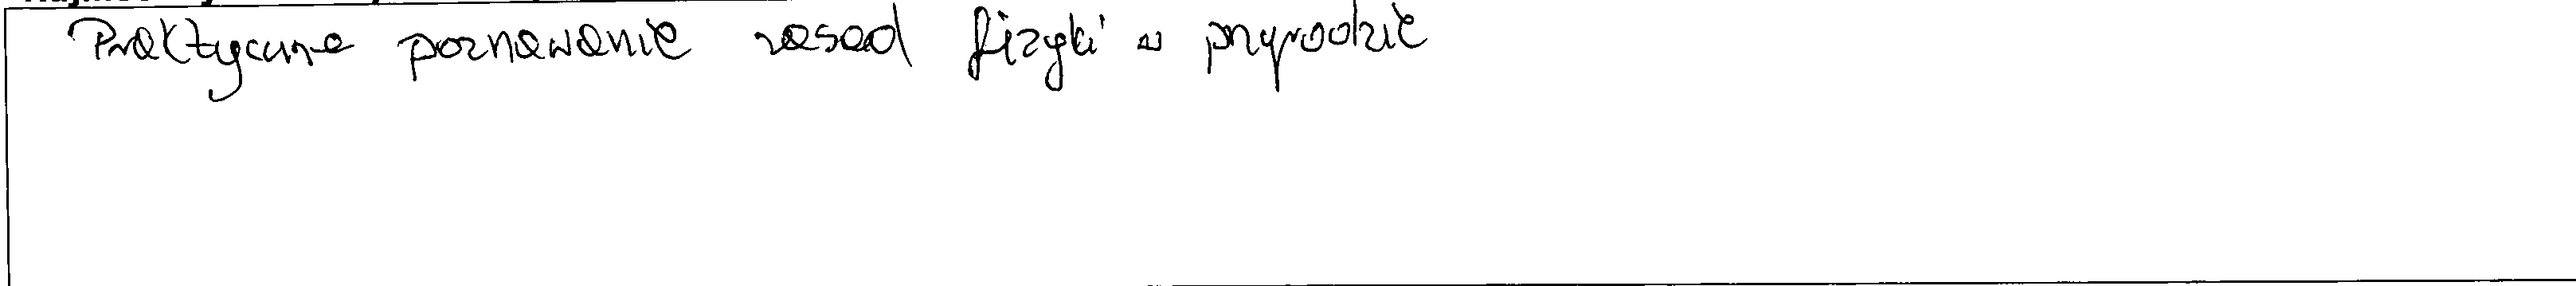 Praktyczne poznawanie zasad fizyki w przyrodzie